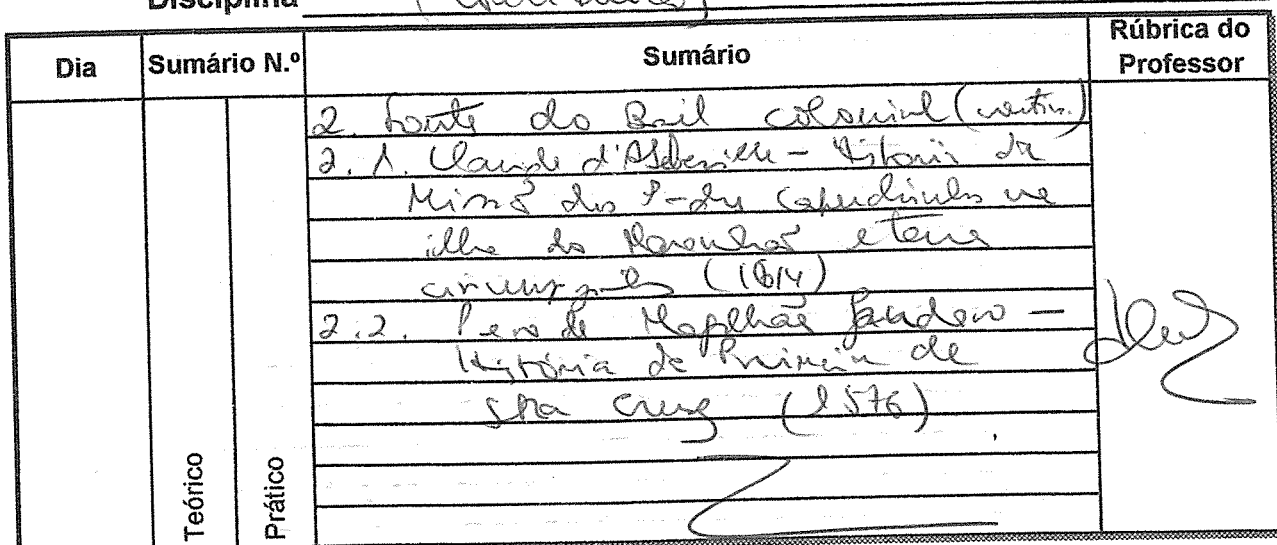 Disciplina
Dia
Sumário N.º
Sumário
Rúbrica do
Professor
2. Fonte do Brasil colonial (contin.)
2.1. Claude d'Abbeville - História da
Missão dos Padres Capuchinhos na
ilha do Maranhão e terras
circunvizinhas (1614)
2.2. Pero de Magalhães Gandavo -
História da Província de
Sta Cruz (1576)
Teórico
Prático